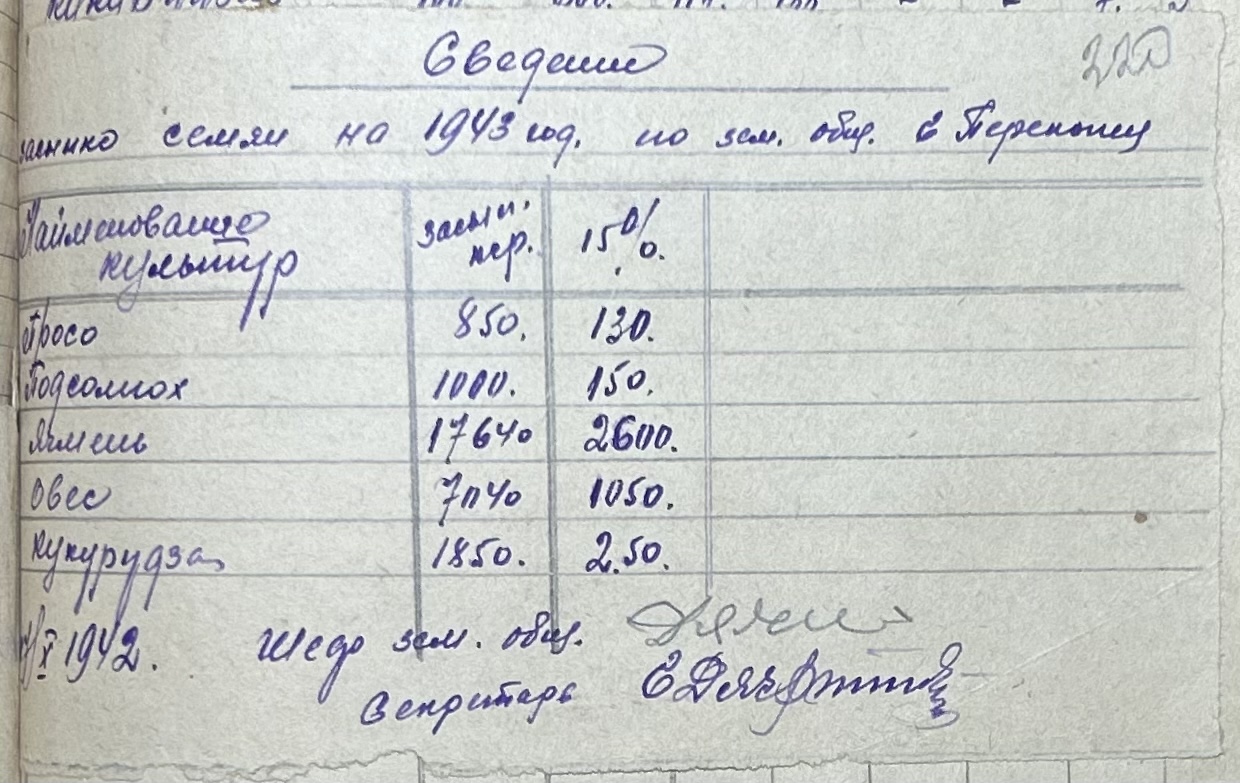 Сведение
220
семян на 1943 год. по зем. общ. с Перекопец
Наименование культур засып. пер. 15%.
Просо 850. 130.
Подсолнох 1000. 150.
Ячмень 17640 2600.
Овес 7040 1050.
Кукурудза 1850. 2.50.
X 1942. зем. общ.
Секретарь